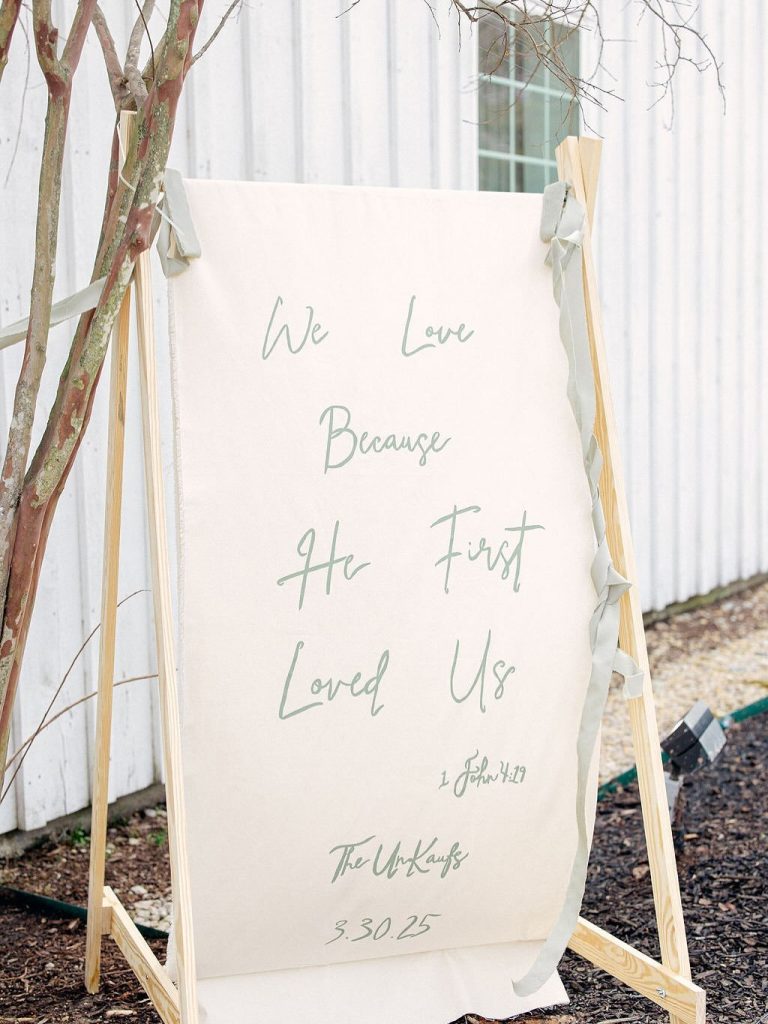 We Love
Because
He First
Loved Us
1 John 4:19
The UnKaufs
3.30.25